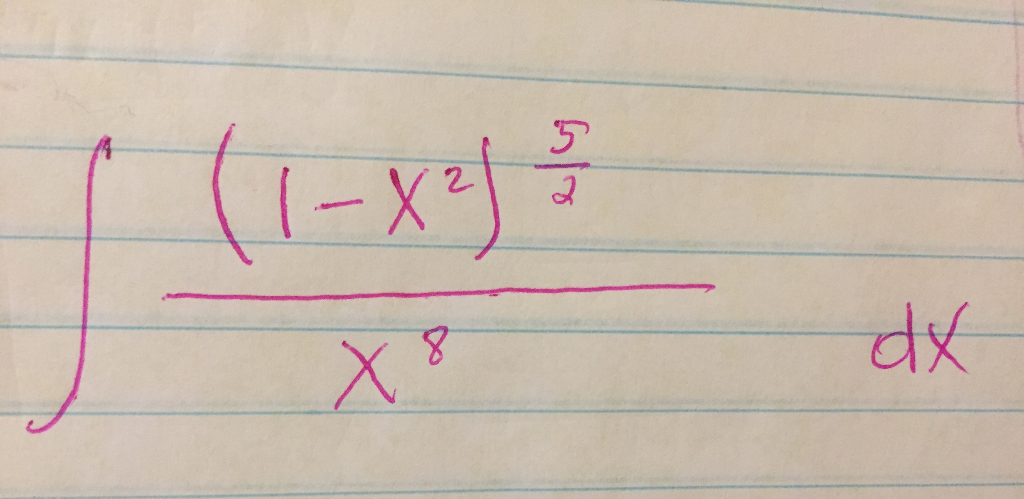 ∫ (1-x²)^(5/2) / x⁸ dx